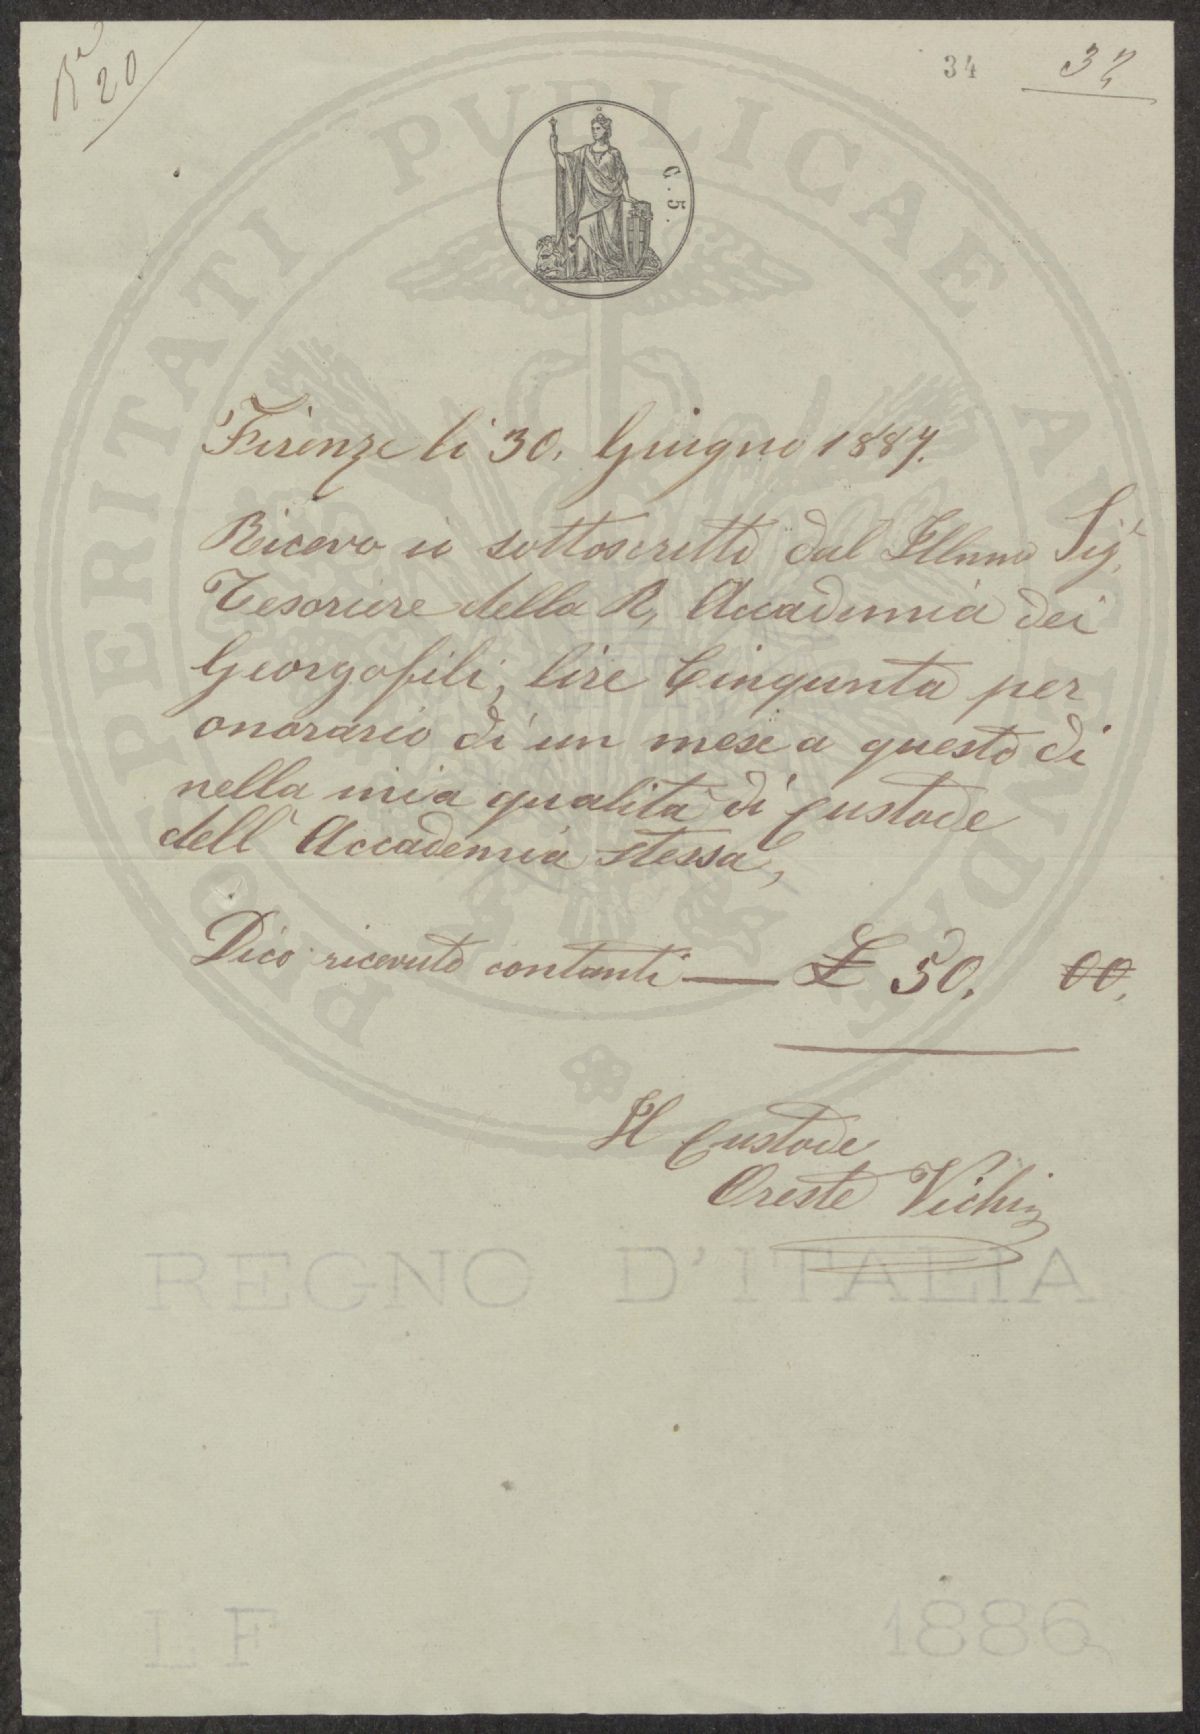 Ra 20
34
32
C. 5.
Firenze li 30. Giugno 1887.
Ricevo io sottoscritto dal Illmo Sigr.
Tesoriere della R. Accademia dei
Georgofili, lire Cinqunta per
onorario di un mese a questo di
nella mia qualità di Custode
dell'Accademia stessa,
Dico ricevuto contanti — £ 50. 00.
Il Custode
Oreste Vichi
PROSPERITATI PUBLICAE AUGENDAE
REGNO D'ITALIA
LF 1886